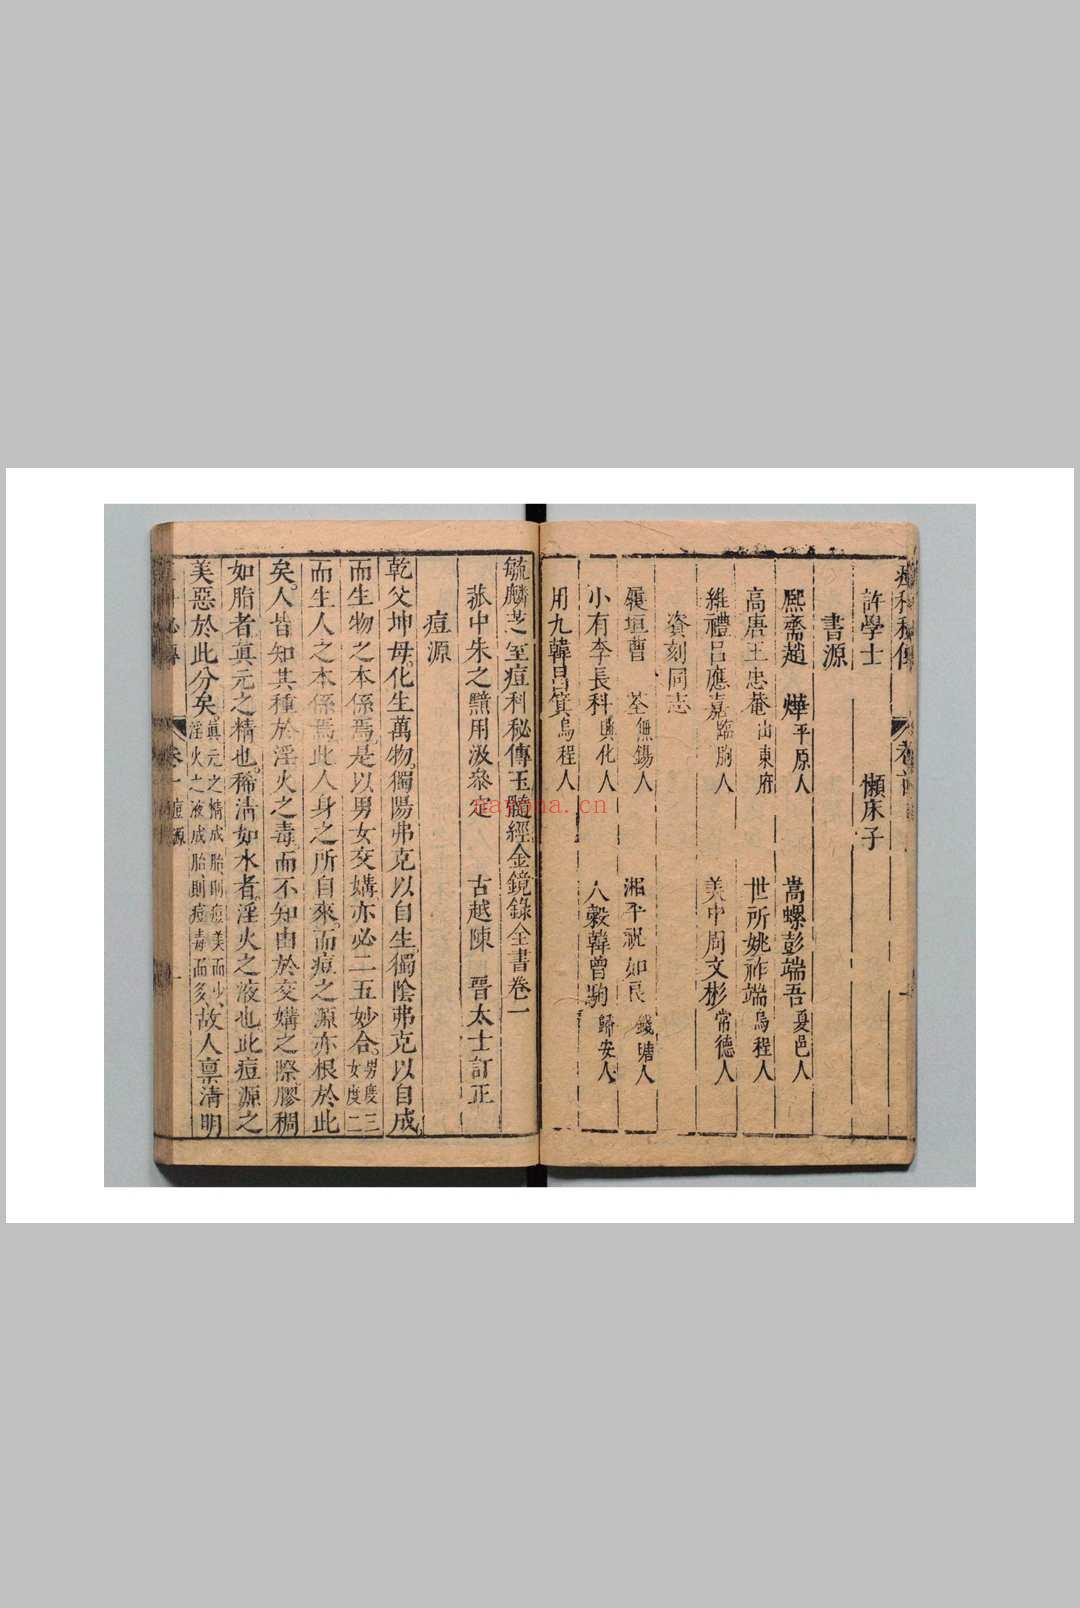 痘科秘傳
許學士 懶床子
書源
熈齋趙 燁平原人 嵩螺彭端吾夏邑人
高唐王忠菴山東府 世所姚祚端烏程人
維禮呂應嘉臨朐人 美中周文彬常德人
資刻同志
垣曹 荃無錫人 湘平祝如良錢塘人
小有李長科興化人 人穀韓曾駒歸安人
用九韓昌箕烏程人
毓麟芝室痘科秘傳玉髓經金鏡錄全書卷一
菰中朱之黯用汲叅定 古越陳 晋太士訂正
痘源
乾父坤母。化生萬物。獨陽弗克以自生獨陰弗克以自成
而生物之本係焉。是以男女交媾亦必二五妙合。男度三女度二
而生人之本係焉。此人身之所自來。而痘之源亦根於此
矣。人皆知其種於淫火之毒。而不知由於交媾之際。膠稠
如脂者。真元之精也。稀淸如水者。淫火之液也此痘源之
美惡於此分矣真元之精成胎則痘美而少淫火之液成胎則痘毒而多故人稟淸明
卷一 痘源 一
nayona.cn